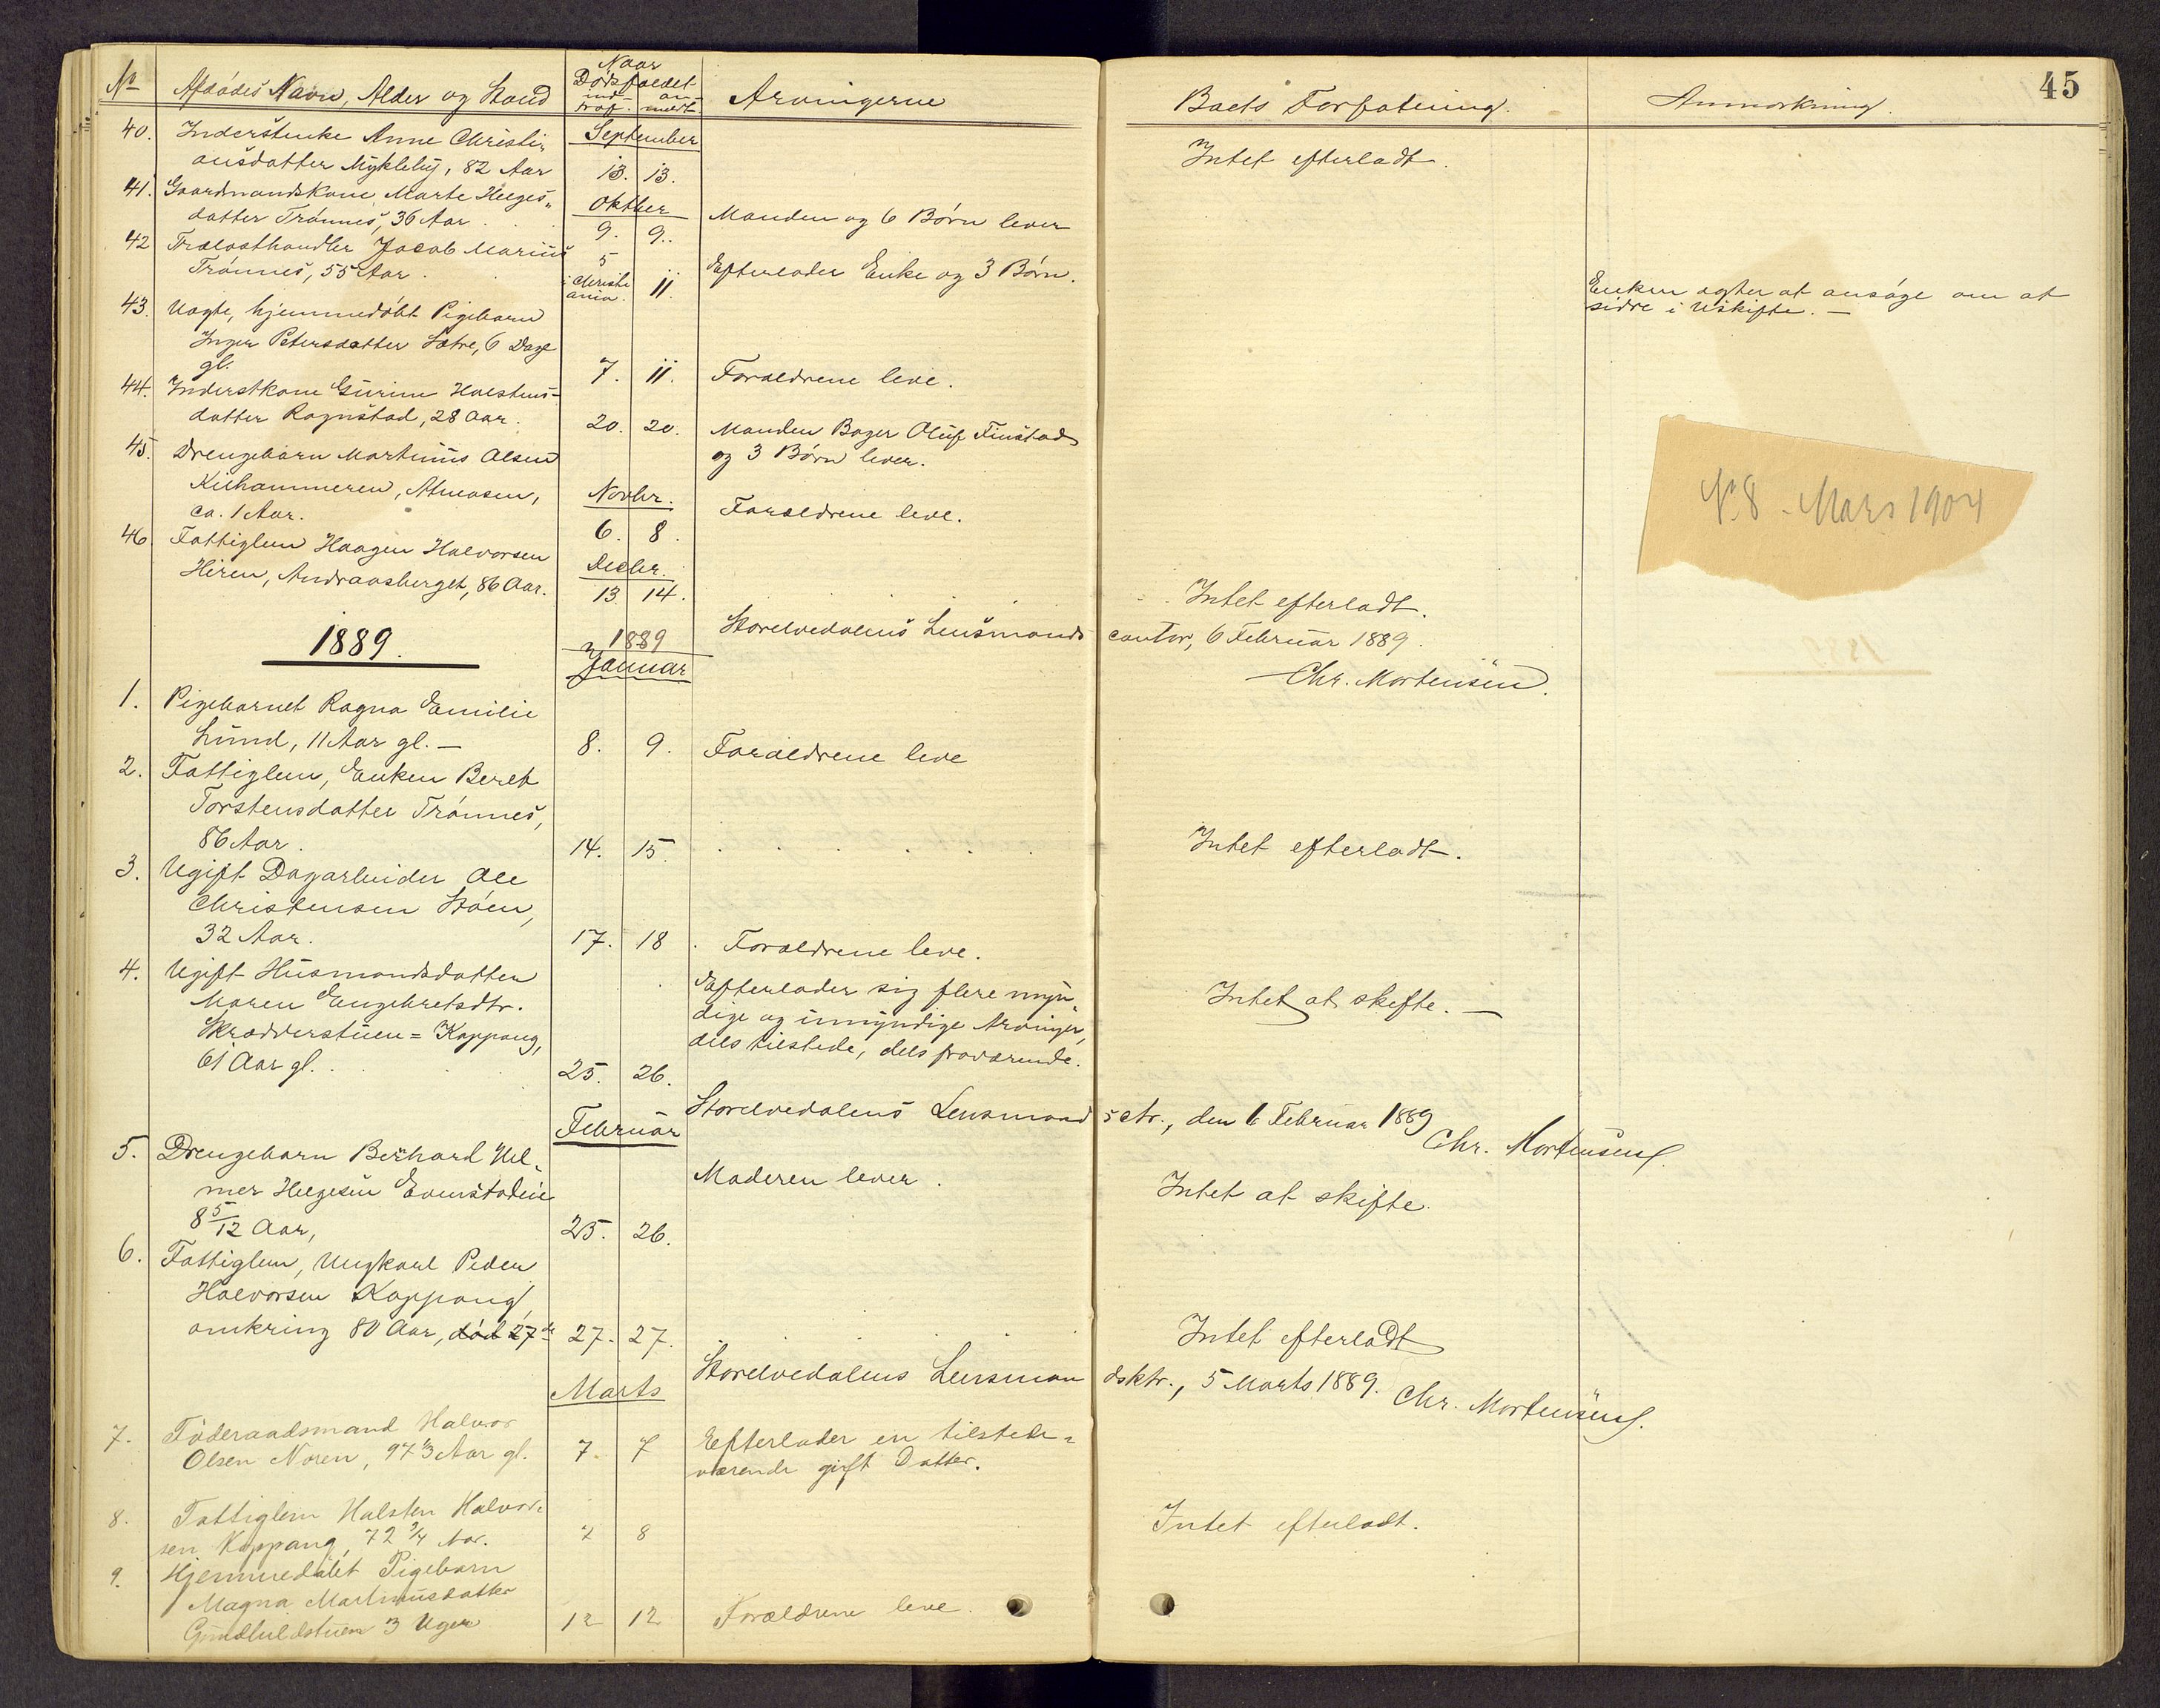 45
No Afdödes Navn, Alder og Stand
Naar Dödsfaldet
ind- traf. an- meldt
Arvingerne
Boets Forfatning.
Anmærkning.
40. Inderstenke Anne Christi-
ansdatter Mykleby, 82 Aar
September
13. 13.
Intet efterladt.
41. Gaardmandskone Marte Helges-
datter Trönnes, 36 Aar
Oktber
9. 9.
Manden og 6 Börn lever
42 Trælasthandler Jacob Marius
Trönnes, 55 Aar.
5 i Christi ania. 11.
Efterlader Enke og 3 Börn.
Enken agter at ansöge om at
sidde i Uskifte. —
43. Uægte, hjemmedöbt Pigebarn
Inger Petersdatter Sætre, 6 Dage
gl.
7. 11.
Forældrene leve.
44. Inderstkone Gurine Halstens-
datter Rognstad, 28 Aar.
20. 20.
Manden Bager Oluf Finstad
og 3 Börn lever.
45. Drengebarn Martinus Olsen
Kilhammeren, Atneosen,
ca. 1 Aar.
Novbr.
6. 8.
Forældrene leve.
No 8 - Mars 1904
46 Fattiglem Haagen Halvorsen
Hiren, Andraasberget, 86 Aar.
Decbr.
13 14.
Intet efterladt.
Storelvedalens Lensmands contor, 6 Februar 1889.
Chr. Mortensen.
1889.
1889
Januar
1. Pigebarnet Ragna Emilie
Lund, 11 Aar gl. —
8. 9.
Forældrene leve
2. Fattiglem, Enken Beret
Torstensdatter Trönnes,
86 Aar.
14. 15.
Intet efterladt.
3. Ugift Dagarbeider Ole
Christensen Stöen,
32 Aar.
17. 18.
Forældrene leve.
4. Ugift Husmandsdatter
Maren Engebretsdtr.
Skrædderstuen = Koppang,
61 Aar gl.
25. 26.
Efterlader sig flere myn-
dige og umyndige Arvinger,
dels tilstede, dels fraværende.
Intet at skifte. —
Storelvedalens Lensmand sctr., den 6 Februar 1889
Chr. Mortensen.
Februar
5. Drengebarn Berhard Hel-
mer Helgesen Evenstadeie
8 5/12 Aar,
25. 26.
Moderen lever.
Intet at skifte.
6. Fattiglem, Ungkarl Peder
Halvorsen Koppang,
omkring 80 Aar, död 27de
27. 27.
Intet efterladt
Storelvedalens Lensman dsktr., 5 Marts 1889.
Chr. Mortensen.
Marts
7. Föderaadsmand Halvor
Olsen Noren, 97 1/3 Aar gl.
7. 7
Efterlader en tilstede-
værende gift Datter.
8. Fattiglem Halsten Halvor-
sen Koppang, 72 3/4 Aar.
7 8
Intet efterladt.
9. Hjemmedöbt Pigebarn
Magna Martinusdatter
3 Uger
12 12
Forældrene leve.